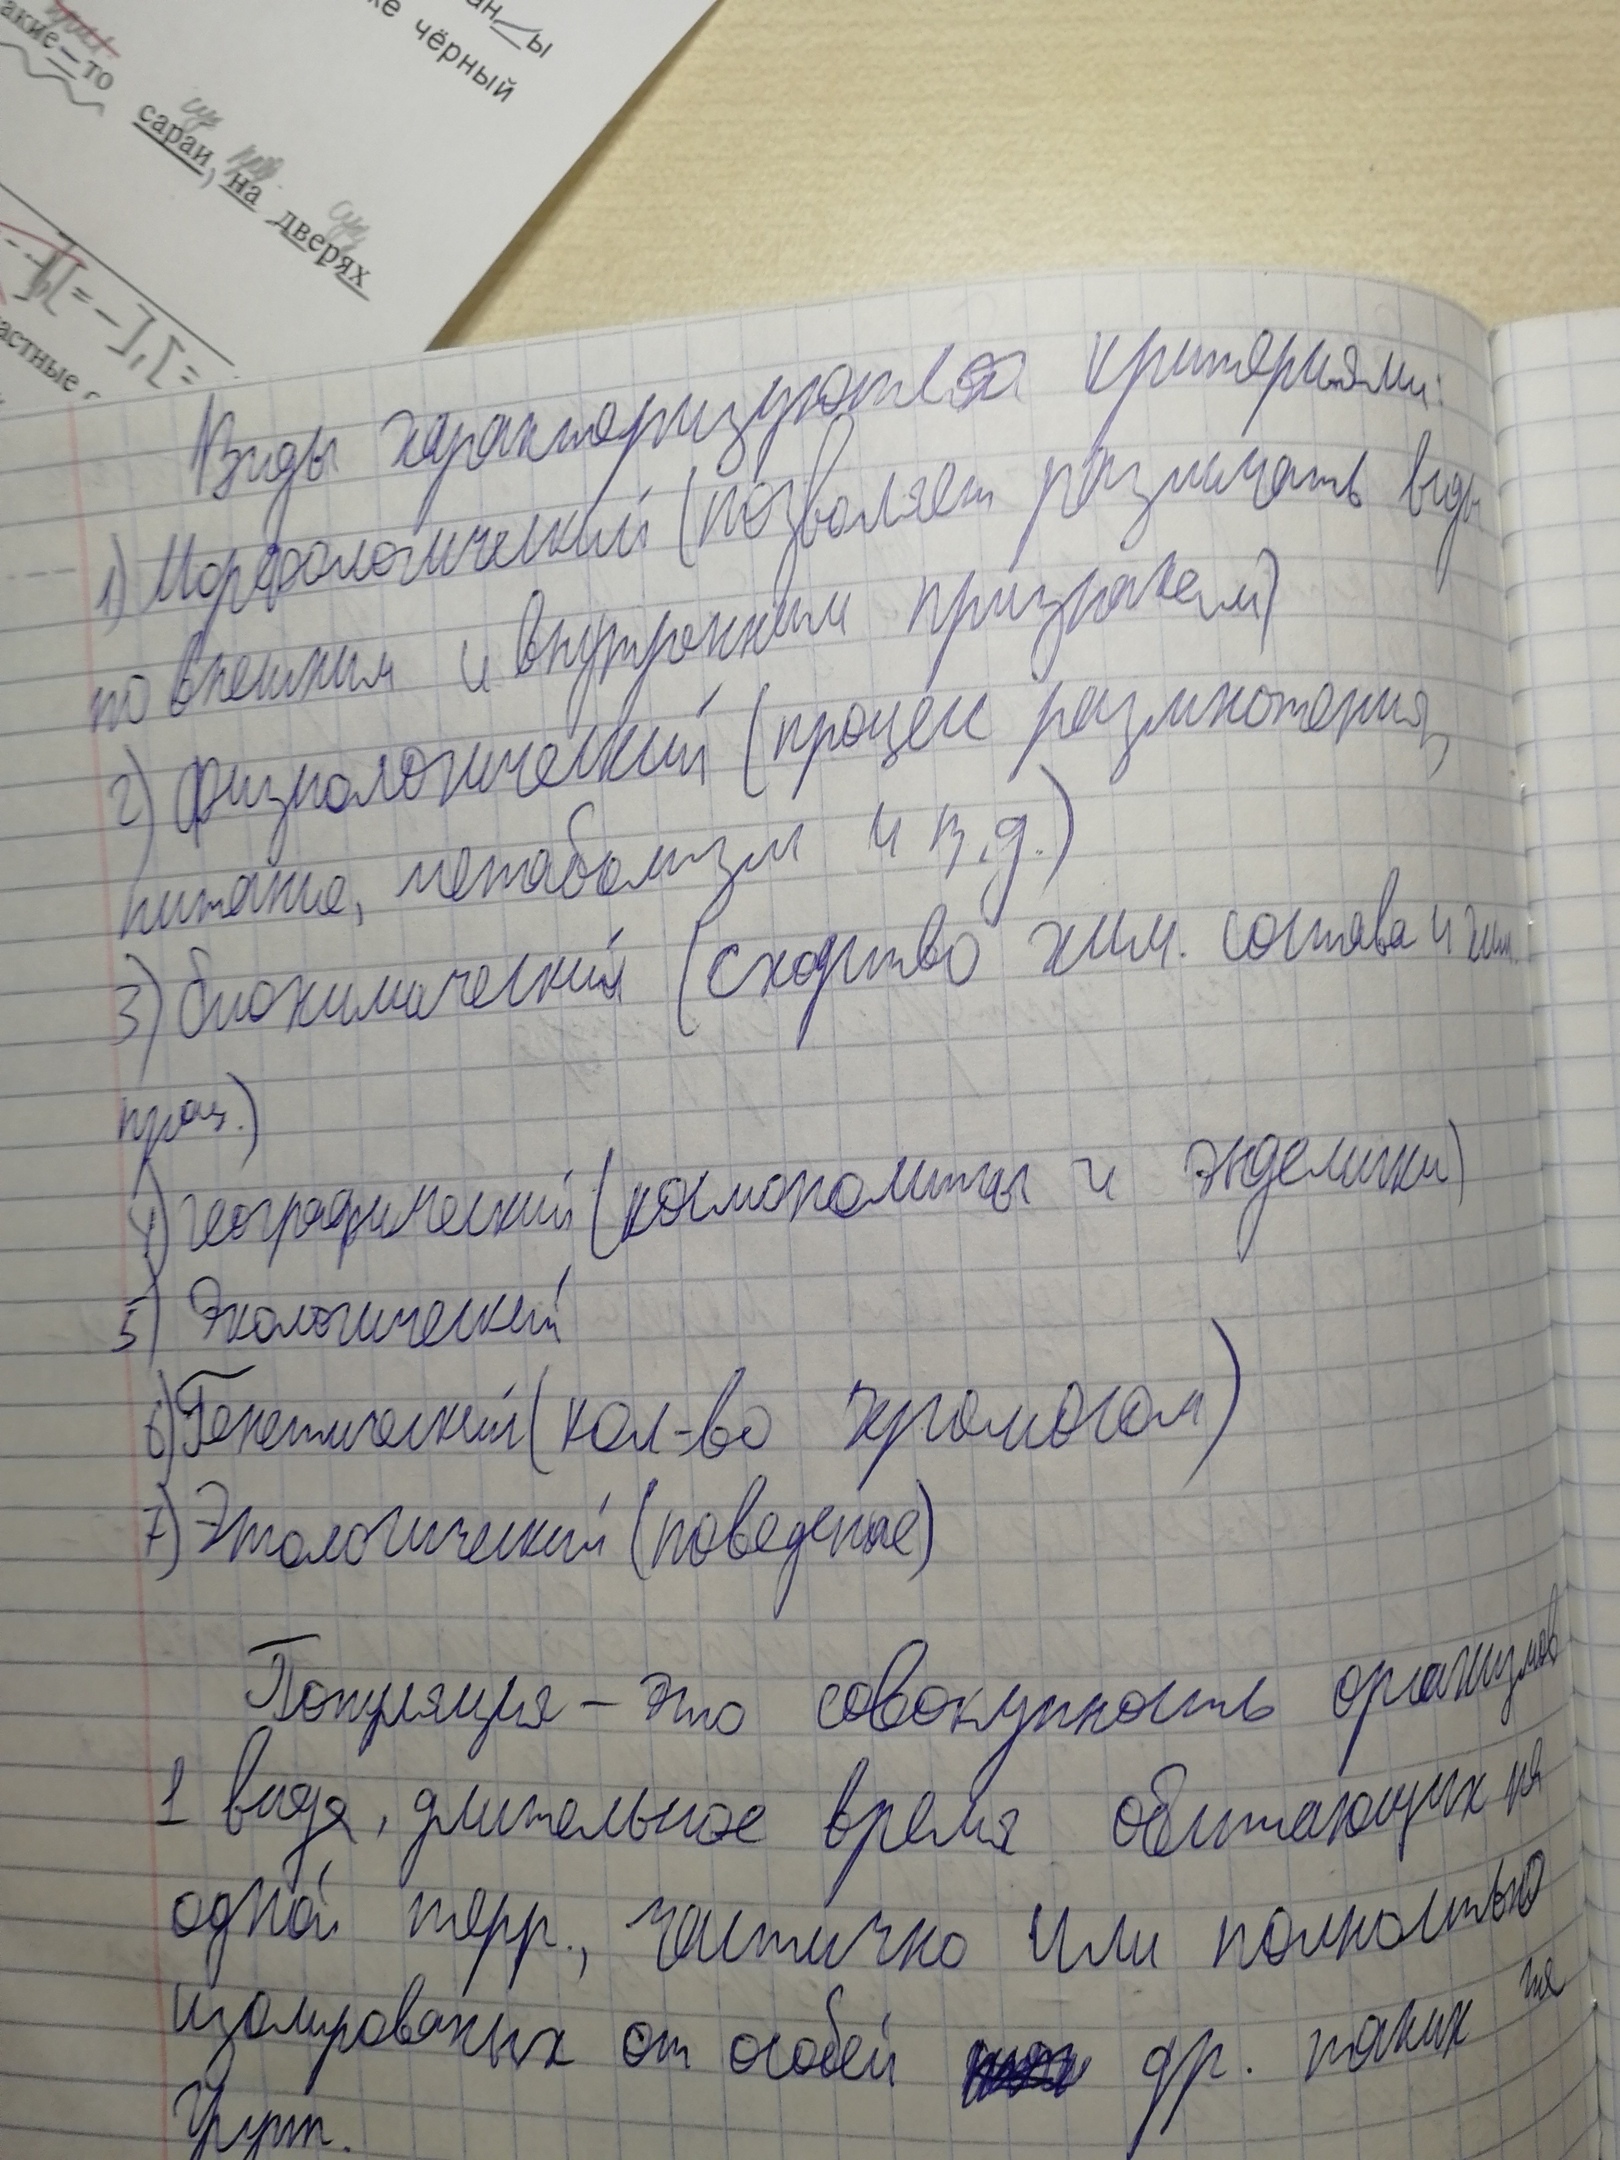 ан ы
же чёрный
акие-то
сараи, на дверях
сущ
сущ
][= -], [=
астные
Виды характеризуются критериями:
1) Морфологический (позволяет различать виды
по внешним и внутренним признакам)
2) физиологический (процесс размножения,
питание, метаболизм и т.д.)
3) биохимический (сходство хим. состава и хим.
проц.)
4) географический (космополиты и эндемики)
5) Экологический
6) Генетический (кол-во хромосом)
7) Этологический (поведение)
Популяция - это совокупность организмов
1 вида, длительное время обитающих на
одной терр., частично или полностью
изолированых от особей др. таких же
групп.